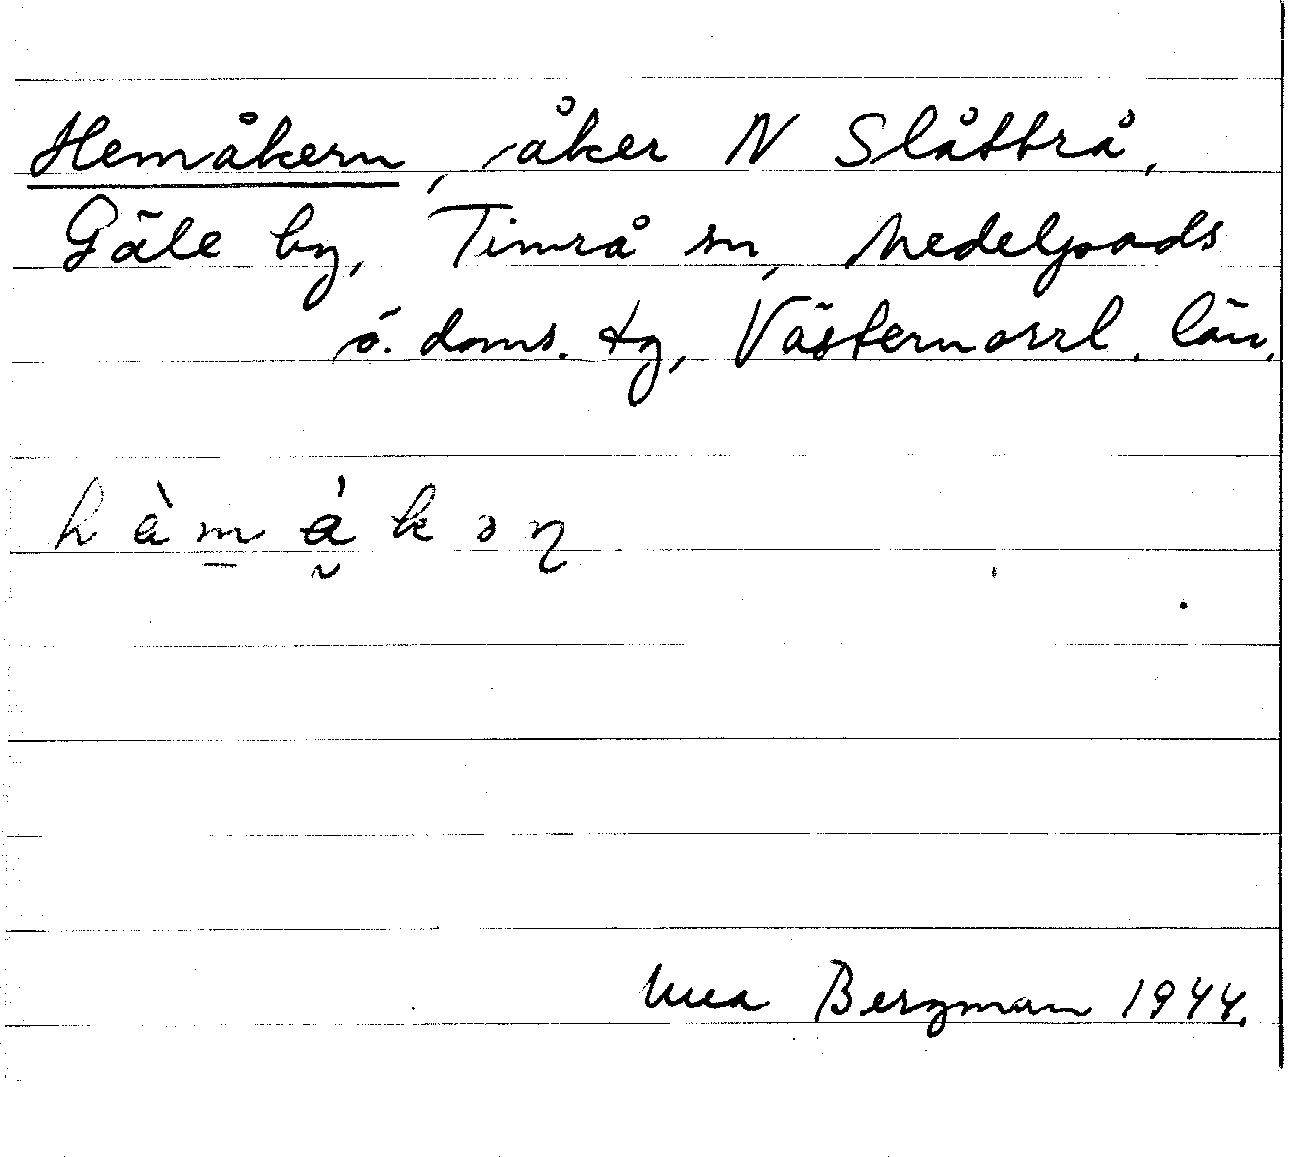 Hemåkern, åker N Slåttrå,
Gäle by, Timrå sn, Medelpads
ö. doms. tg, Västernorrl. län.
h à m̲ å̀ k ə ɳ
Bergman 1944.